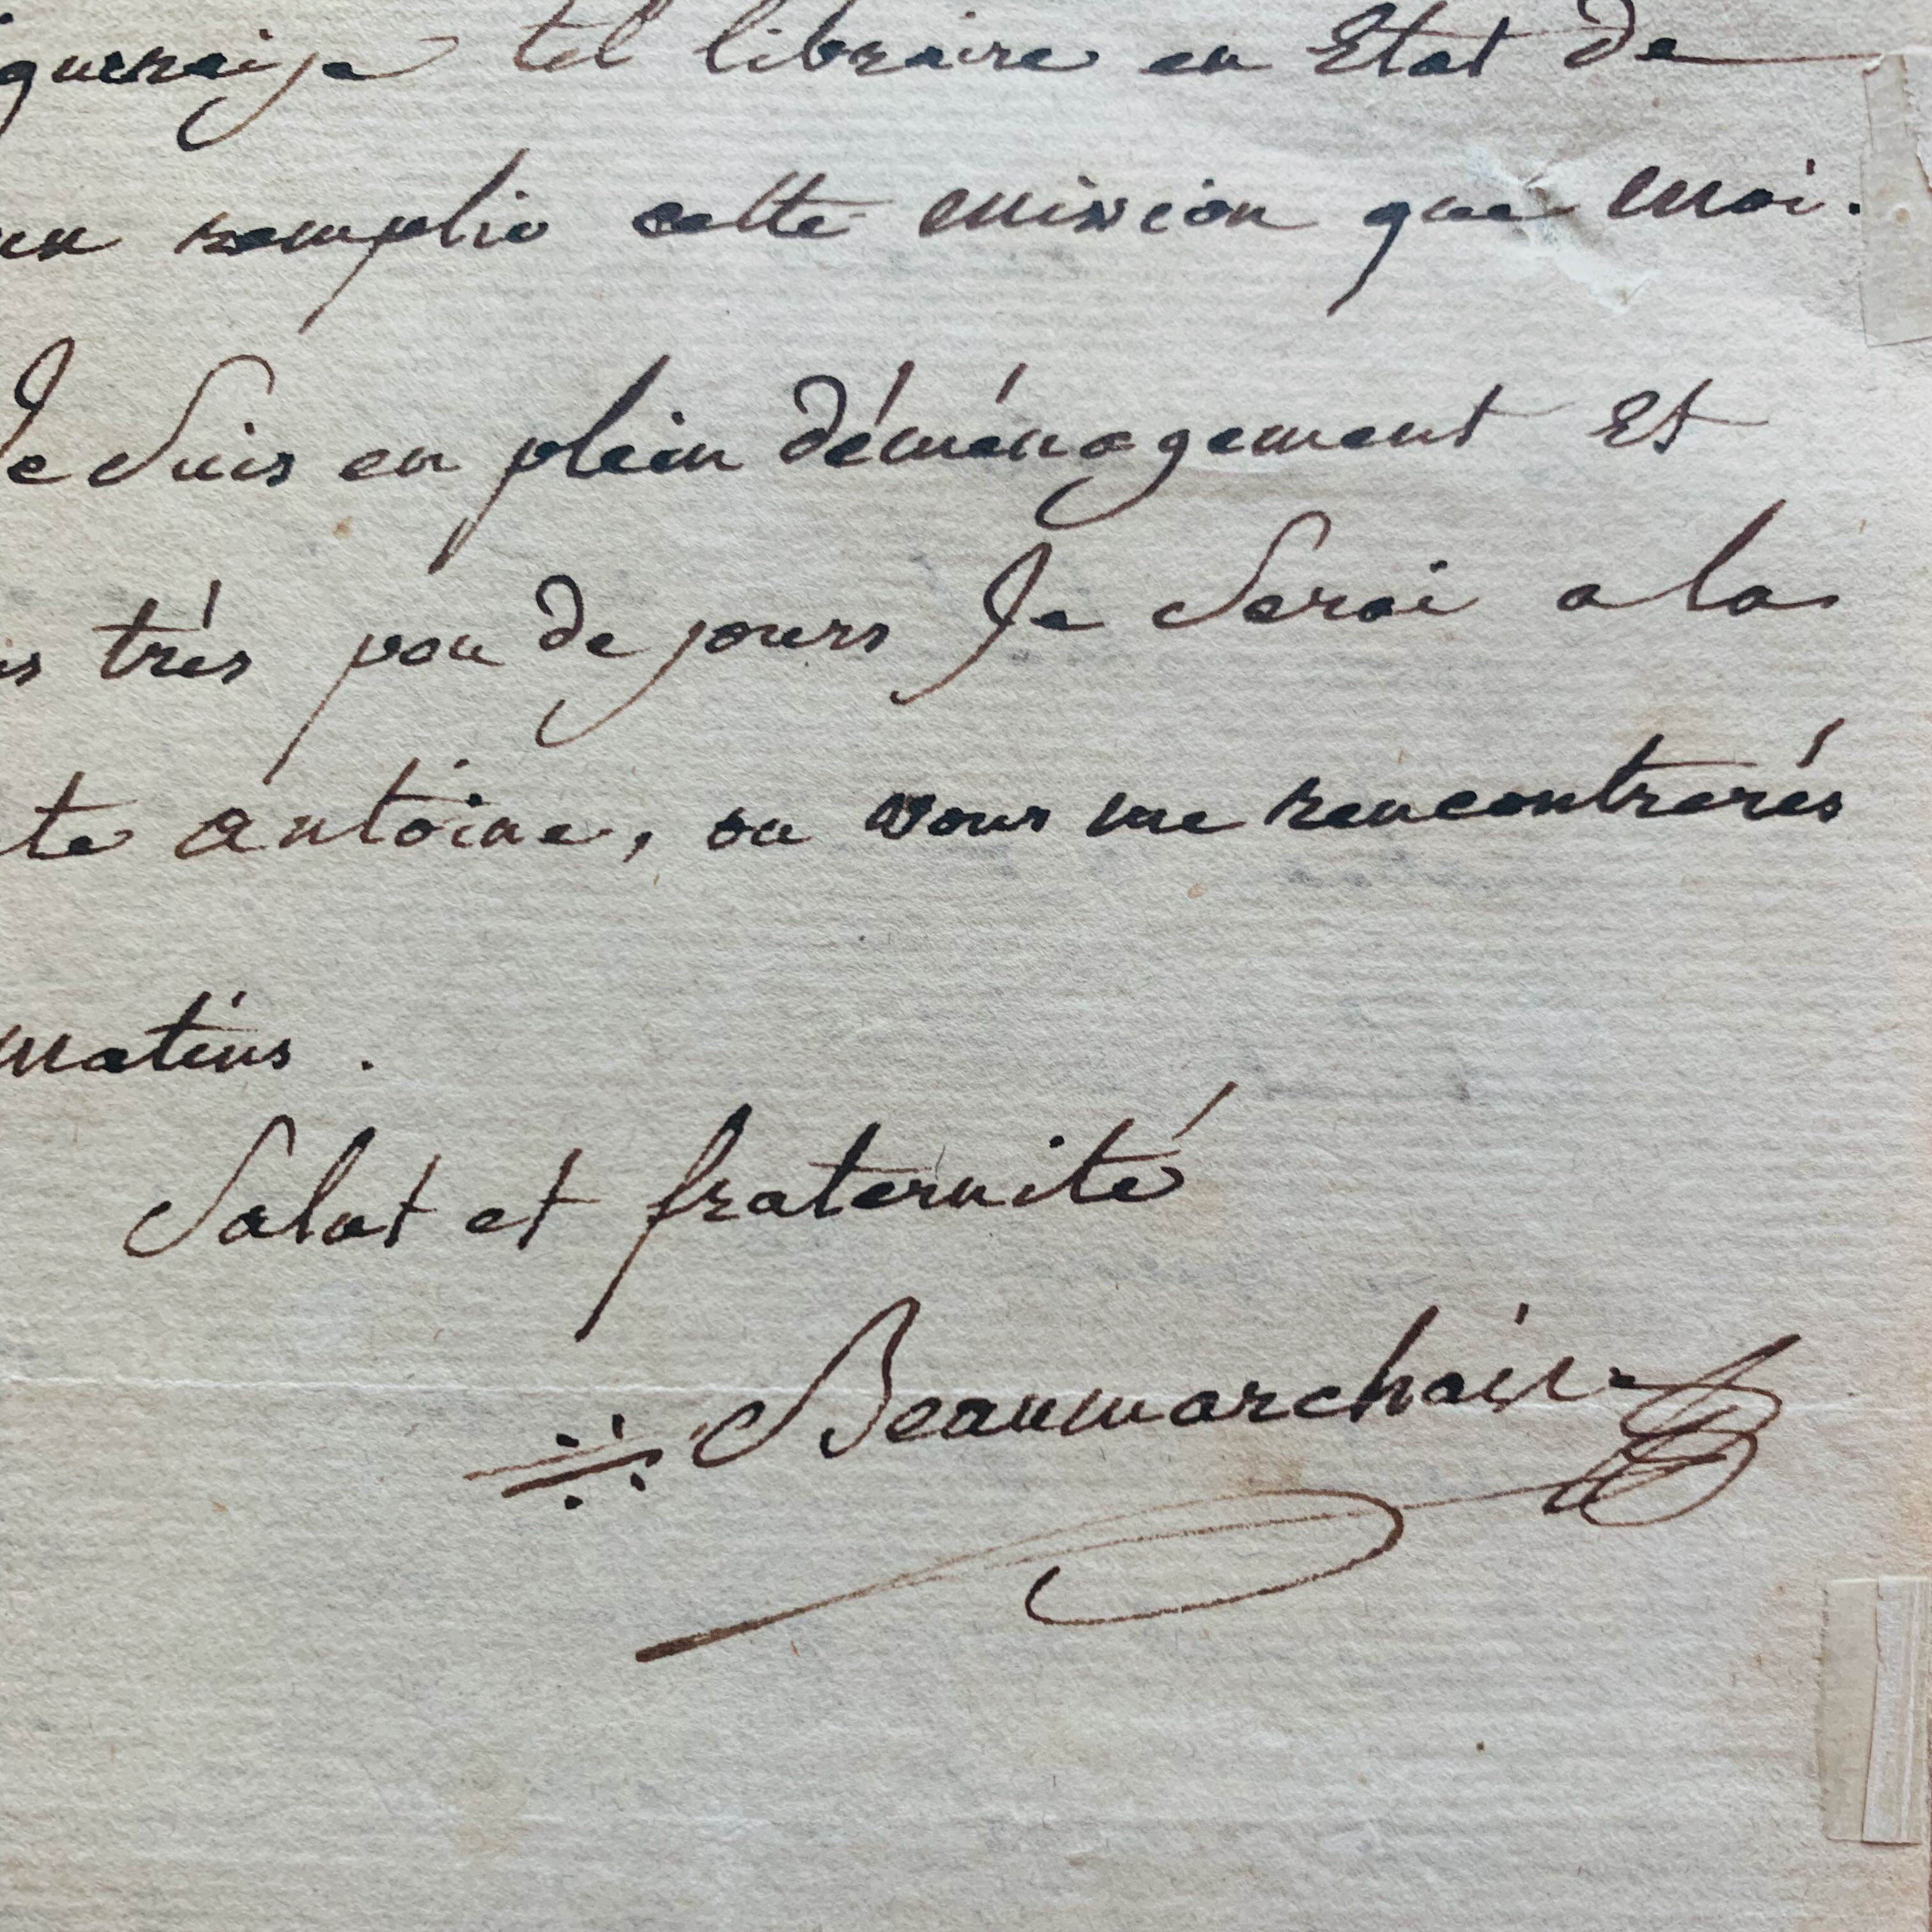 tel libraire en Etat de
remplir cette mission que moi.
Je Suis en plein déménagement Et
très peu de jours Je Serai a la
te antoine, ou vous me rencontrerés
matins.
Salut et fraternité
Beaumarchais